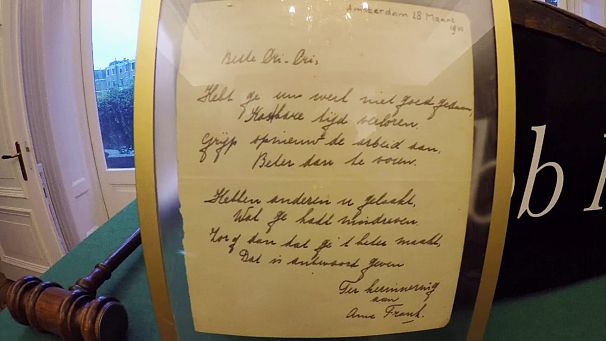 Amsterdam 28 Maart
Beste Cri-Cri,
Hebt ge uw werk niet goed gedaan,
Kostbare tijd verloren.
Grijp opnieuw de arbeid aan.
Beter dan te voren.
Hebben anderen u gelaakt,
Wat ge hadt misdreven.
Zorg dan dat ge 't beter maakt,
Dat is antwoord geven
Ter herinnering
aan
Anne Frank.